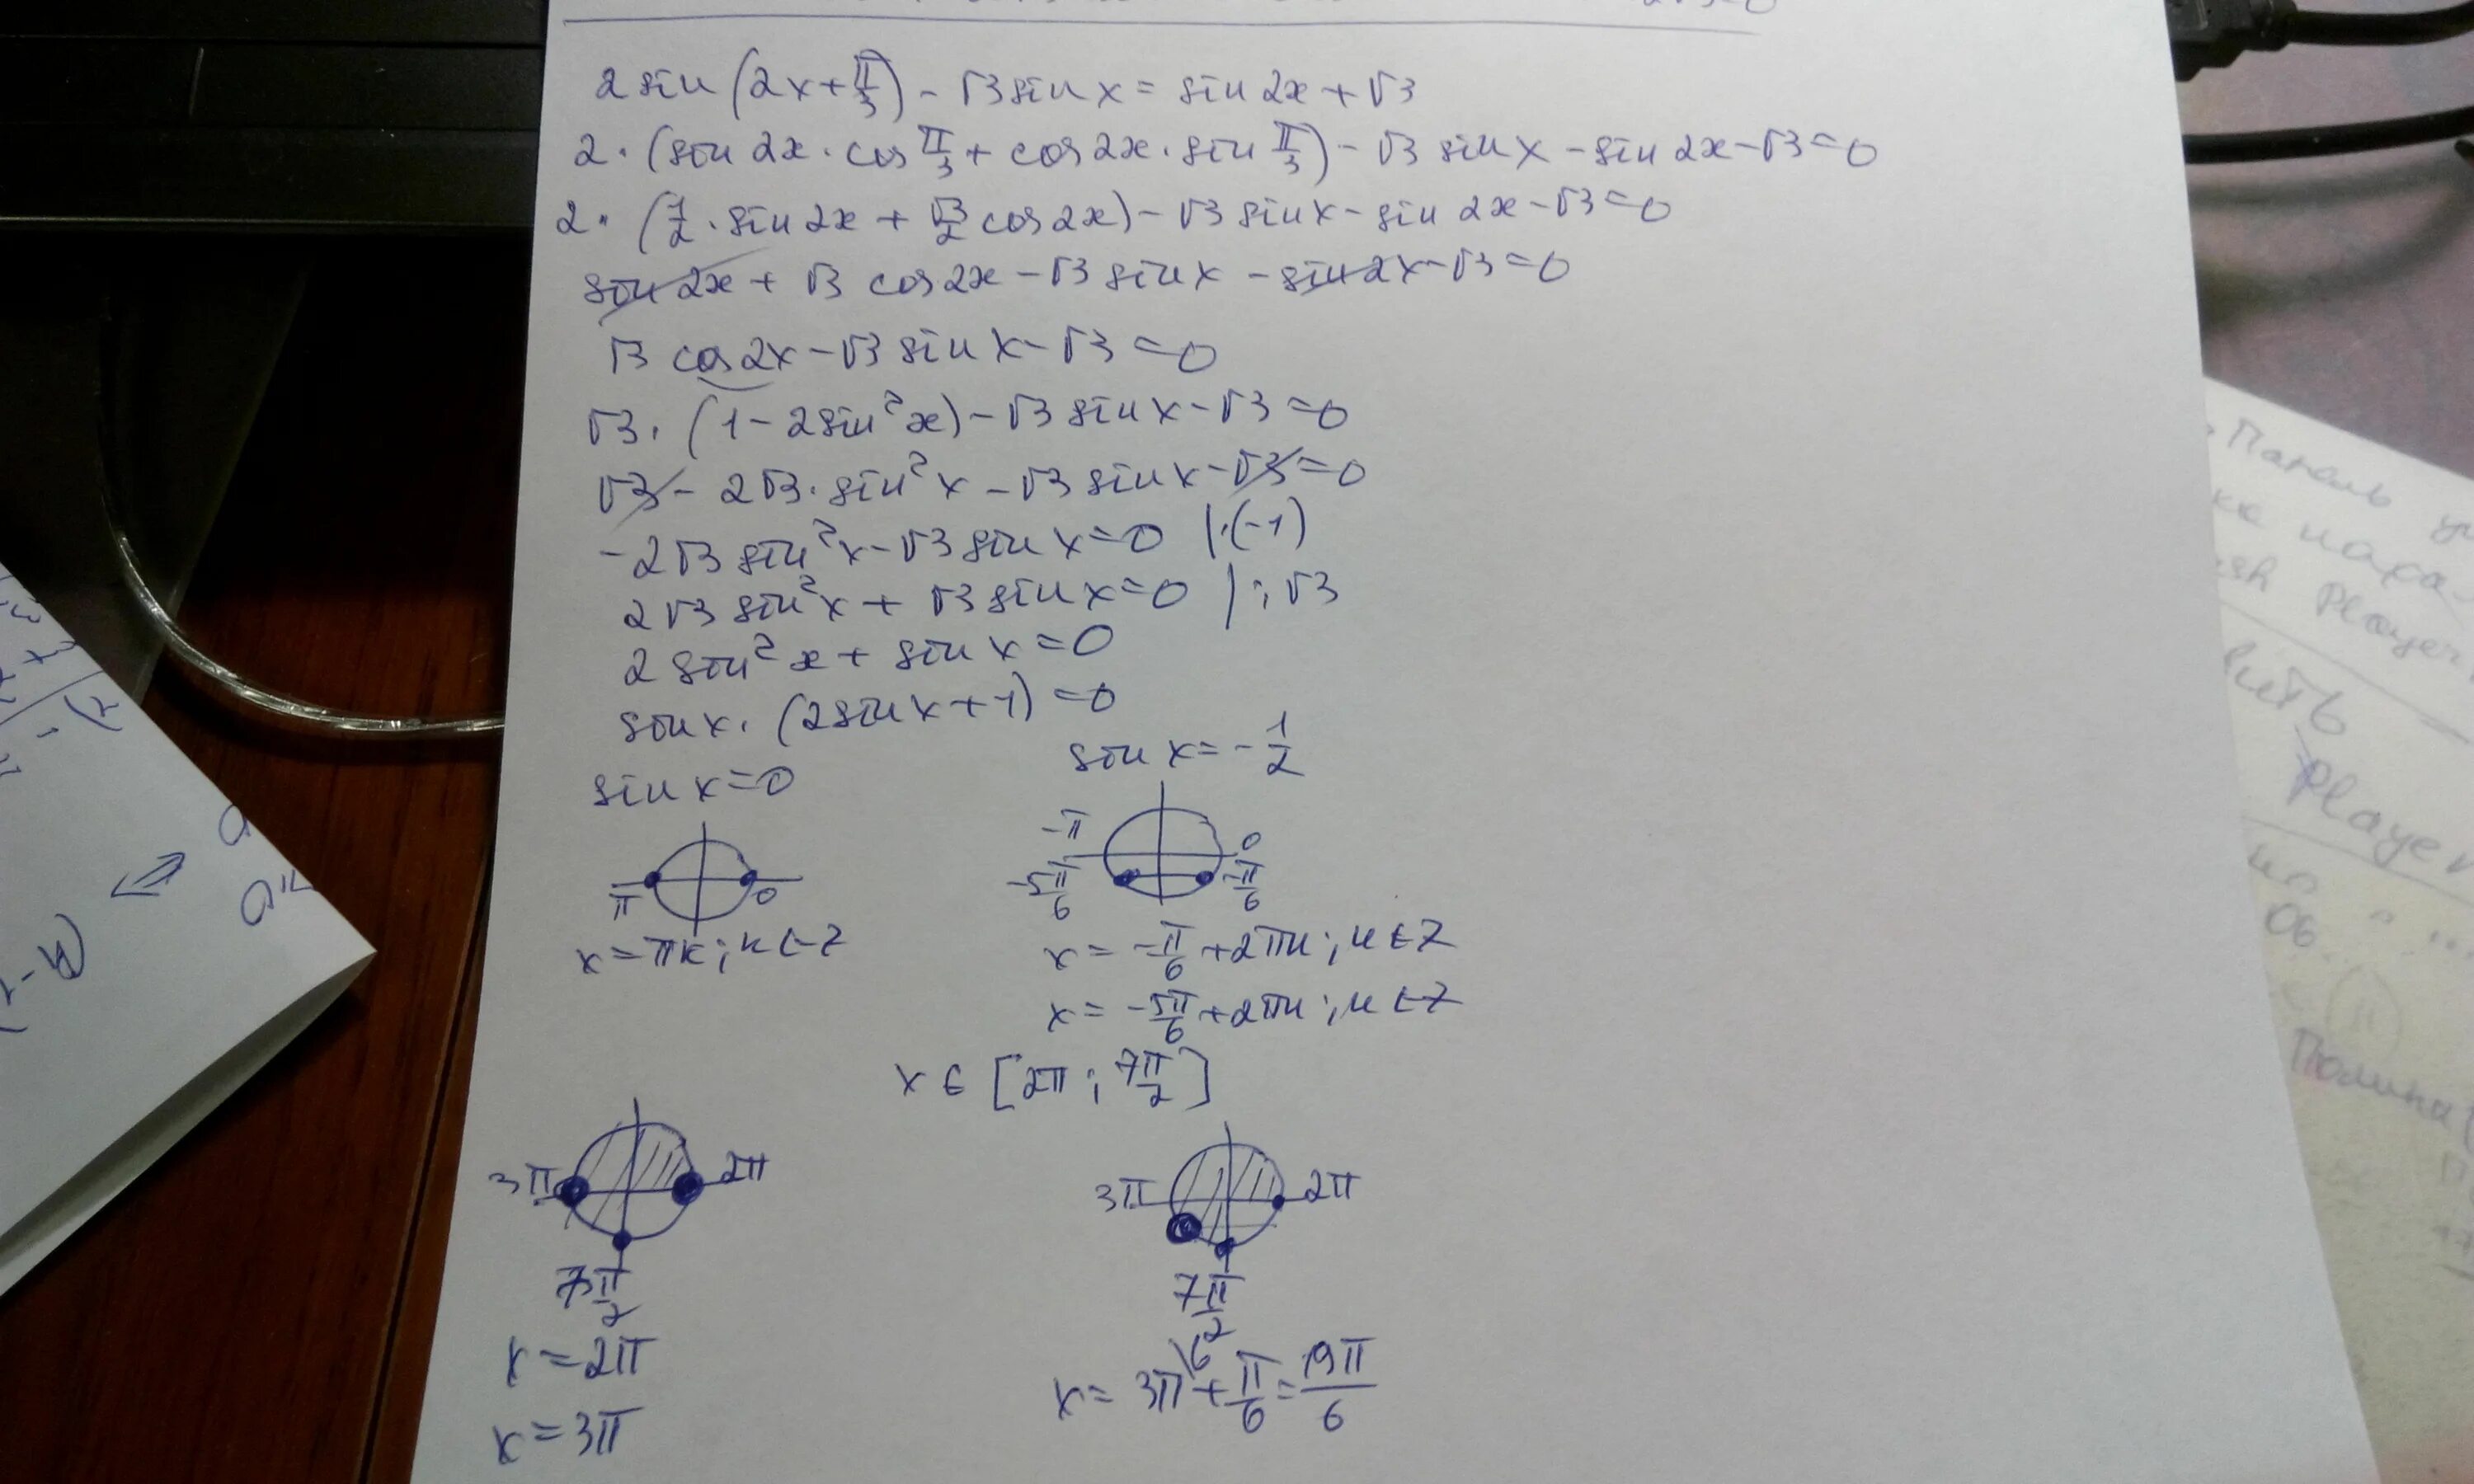 2 sin (2x + π/3) - √3 sin x = sin 2x + √3
2 · (sin 2x · cos π/3 + cos 2x · sin π/3) - √3 sin x - sin 2x - √3 = 0
2 · (1/2 · sin 2x + √3/2 cos 2x) - √3 sin x - sin 2x - √3 = 0
sin 2x + √3 cos 2x - √3 sin x - sin 2x - √3 = 0
√3 cos 2x - √3 sin x - √3 = 0
√3 · (1 - 2 sin² x) - √3 sin x - √3 = 0
√3 - 2√3 · sin² x - √3 sin x - √3 = 0
-2√3 sin² x - √3 sin x = 0 | · (-1)
2√3 sin² x + √3 sin x = 0 | : √3
2 sin² x + sin x = 0
sin x · (2 sin x + 1) = 0
sin x = 0
π 0
x = πk; k ∈ Z
sin x = - 1/2
-π 0
-5π/6 -π/6
x = -π/6 + 2πn; n ∈ Z
x = -5π/6 + 2πn; n ∈ Z
x ∈ [2π; 7π/2]
3π 2π
7π/2
x = 2π
x = 3π
3π 2π
7π/2
x = 3π\6 + π/6 = 19π/6
Панель
Player
Player
Об